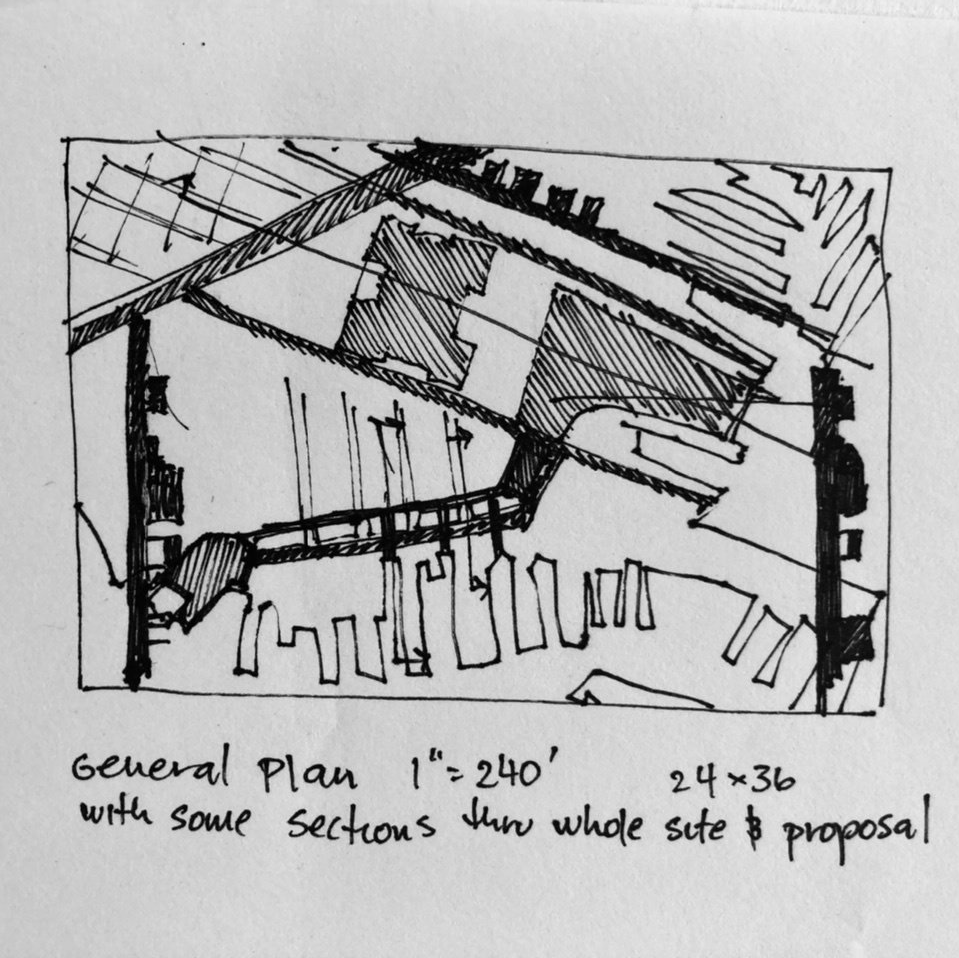 General Plan 1"=240' 24x36
with some sections thru whole site & proposal